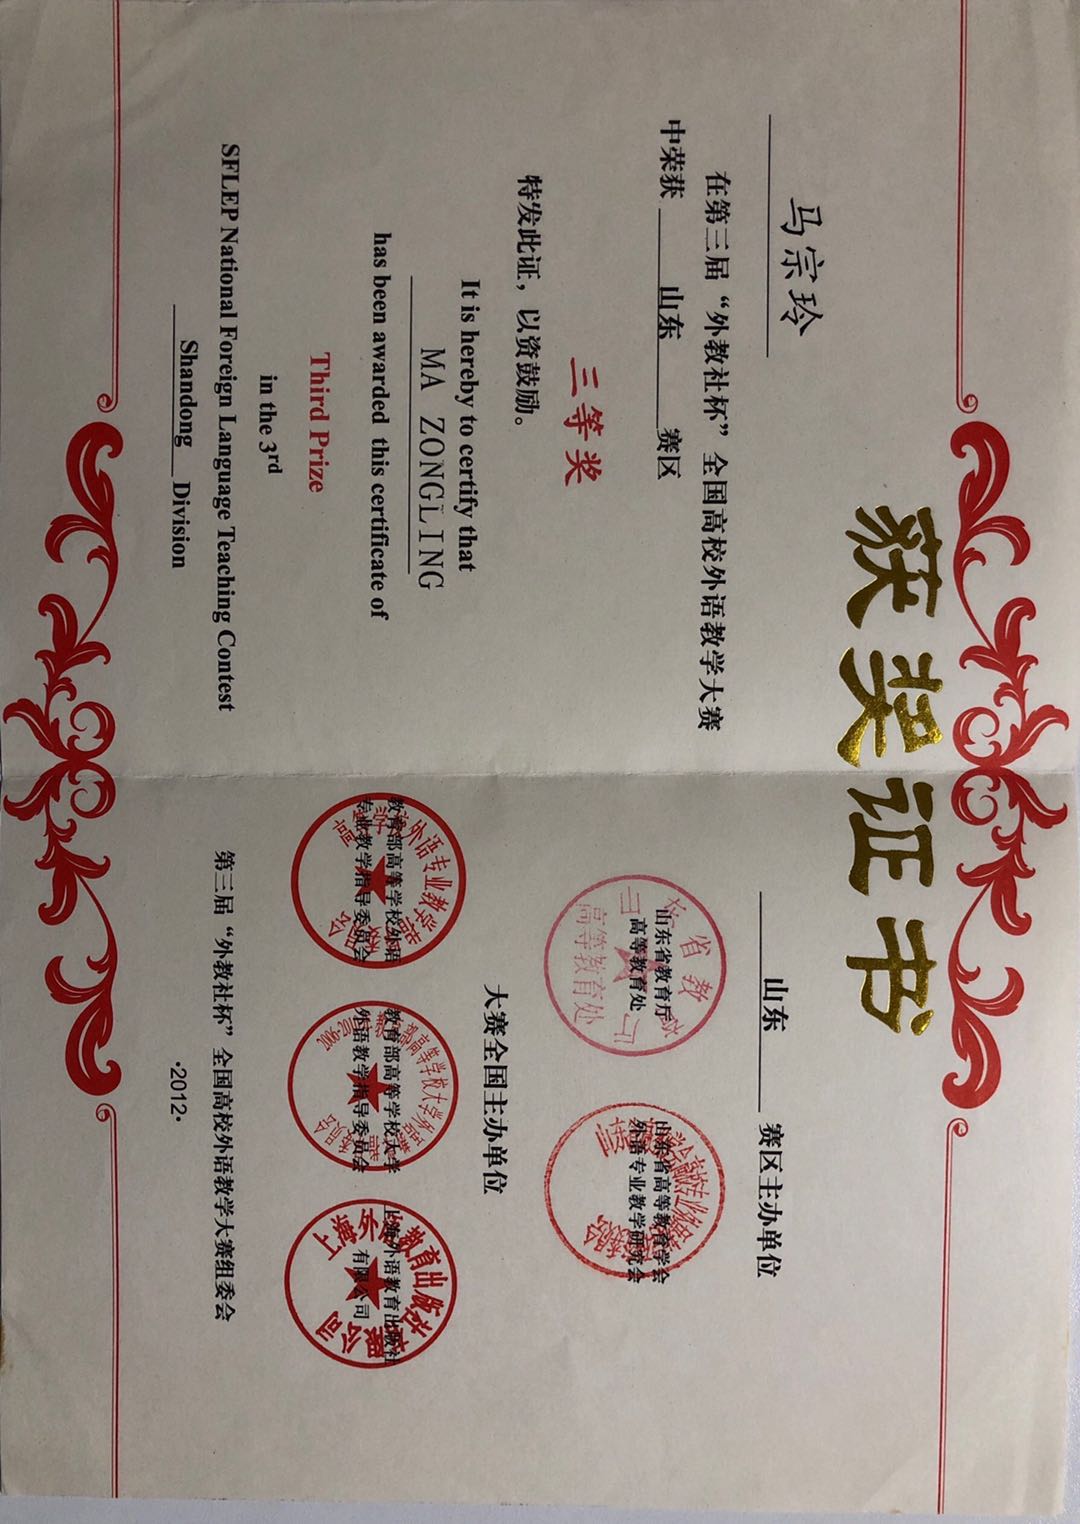 获奖证书
马宗玲
在第三届“外教社杯”全国高校外语教学大赛
中荣获 山东 赛区
三等奖
特发此证，以资鼓励。
It is hereby to certify that
MA ZONGLING
has been awarded this certificate of
Third Prize
in the 3rd
SFLEP National Foreign Language Teaching Contest
Shandong Division
山东 赛区主办单位
山东省教育厅
高等教育处
高等教育处
山东省高等教育学会
外语专业教学研究会
大赛全国主办单位
教育部高等学校外语
专业教学指导委员会
教育部高等学校大学
外语教学指导委员会
上海外语教育出版社
有限公司
第三届“外教社杯”全国高校外语教学大赛组委会
·2012·